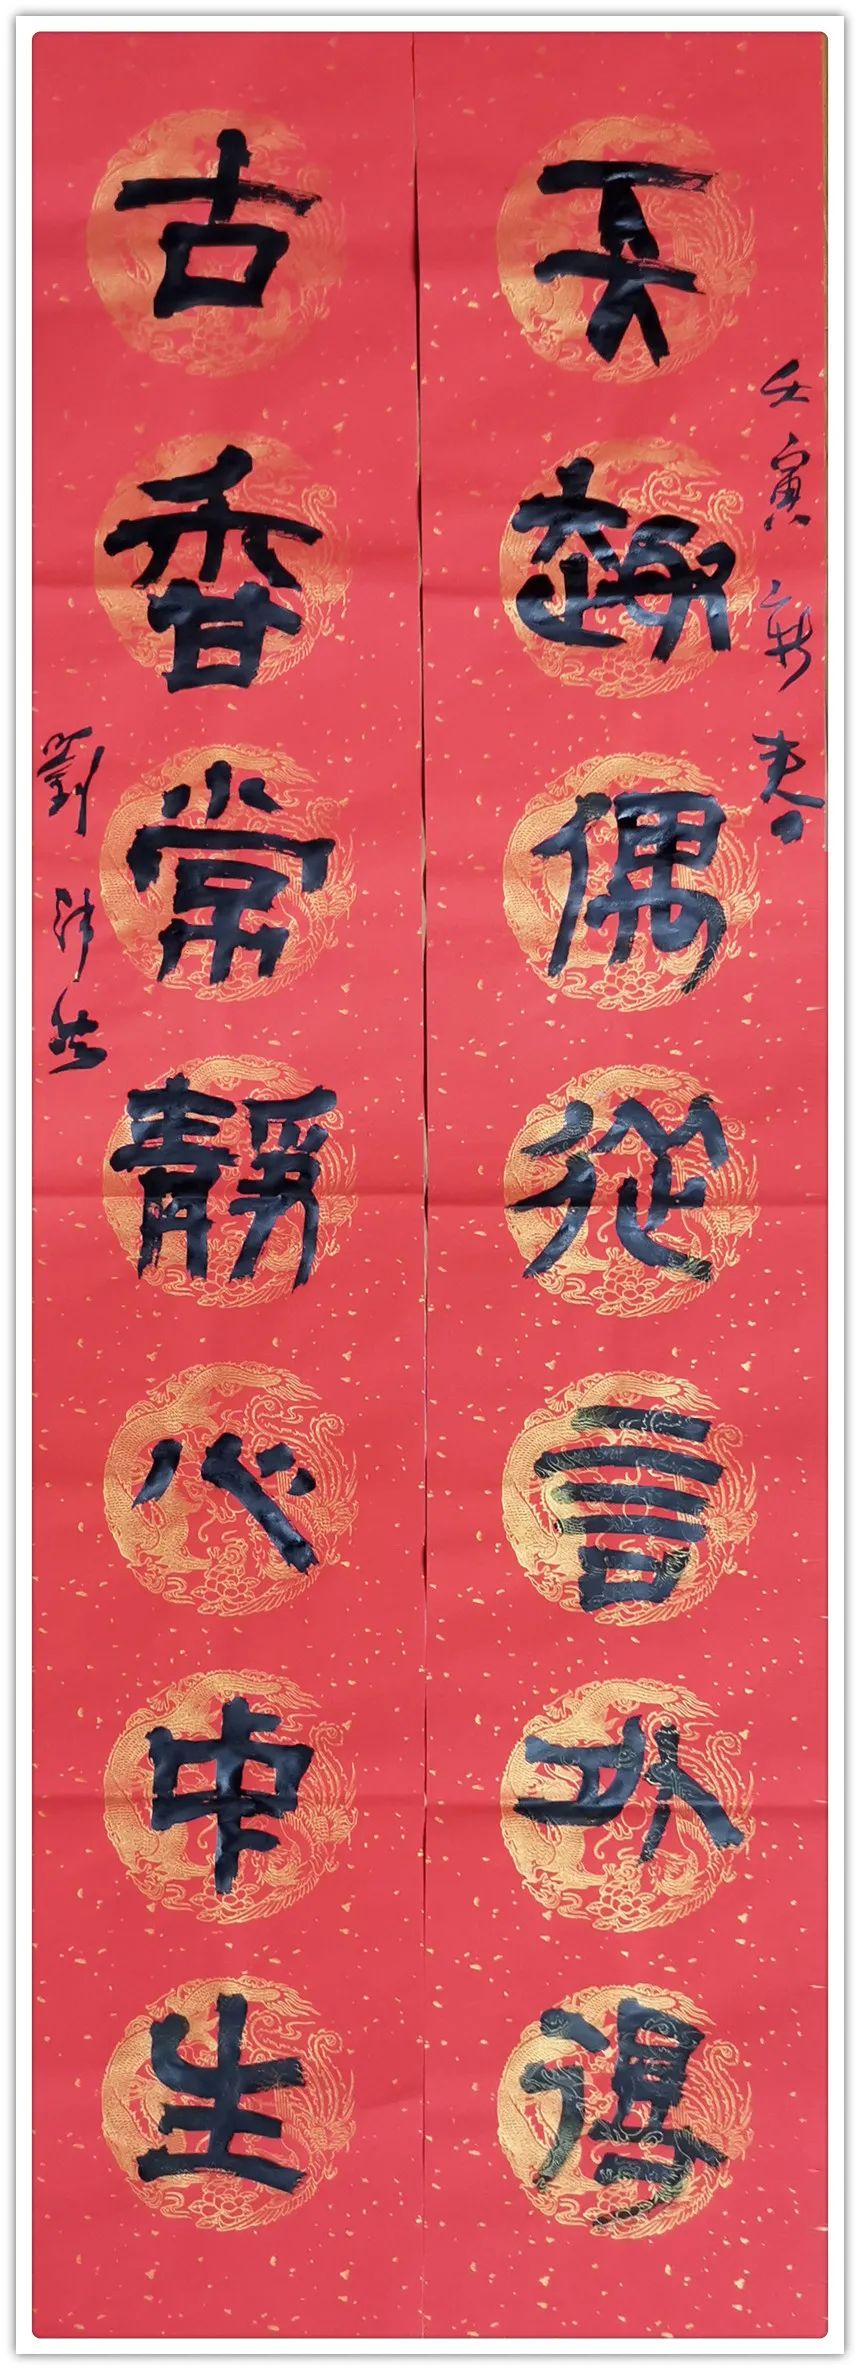 壬寅新春
天趣偶從言外得
古香常靜心中生
劉